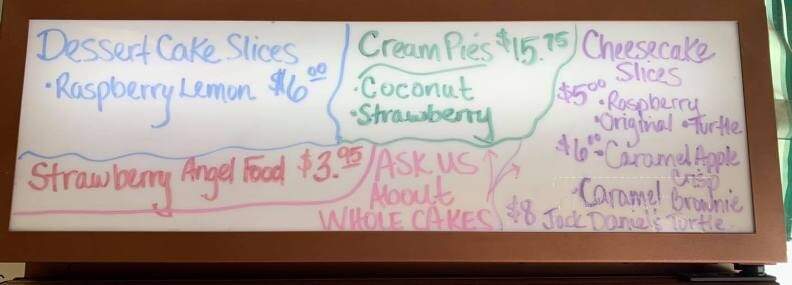 Dessert Cake Slices
•Raspberry Lemon $6.00
Cream Pies $15.75
•Coconut
•Strawberry
Cheesecake
Slices
$5.00 •Raspberry
•Original •Turtle
$6.00 -Caramel Apple
Crisp
•Caramel Brownie
$8 Jack Daniel's Turtle
Strawberry Angel Food $3.95
ASK US
About
WHOLE CAKES